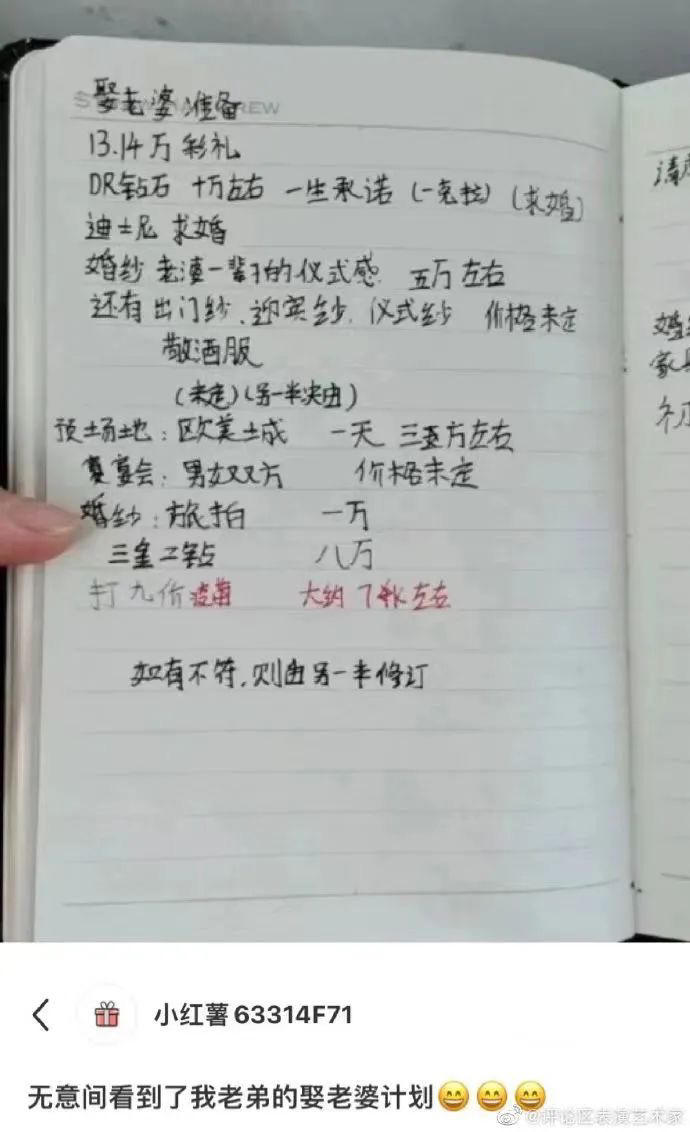 娶老婆 准备
13.14万 彩礼
DR钻石 十万左右 一生承诺 (一克拉) (求婚)
迪士尼 求婚
婚纱 老婆一辈子的仪式感 五万左右
还有出门纱、迎宾纱、仪式纱 价格未定
敬酒服
(未定)(另一半决定)
场地:欧美 一天 三五万左右
宴会:男女双方 价格未定
婚纱:旅拍 一万
三金 钻 八万
打九价疫苗 大约 左右
如有不符,则由另一半修订
小红薯63314F71
无意间看到了我老弟的娶老婆计划😄😄😄
@评论区表演艺术家